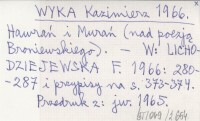 WYKA Kazimierz 1966.
Hawrań i Murań (nad poezją
Broniewskiego). — W: LICHO-
DZIEJEWSKA F. 1966: 280-
-287 i przypisy na s. 373-374.
Przedruk z: jw. 1965.